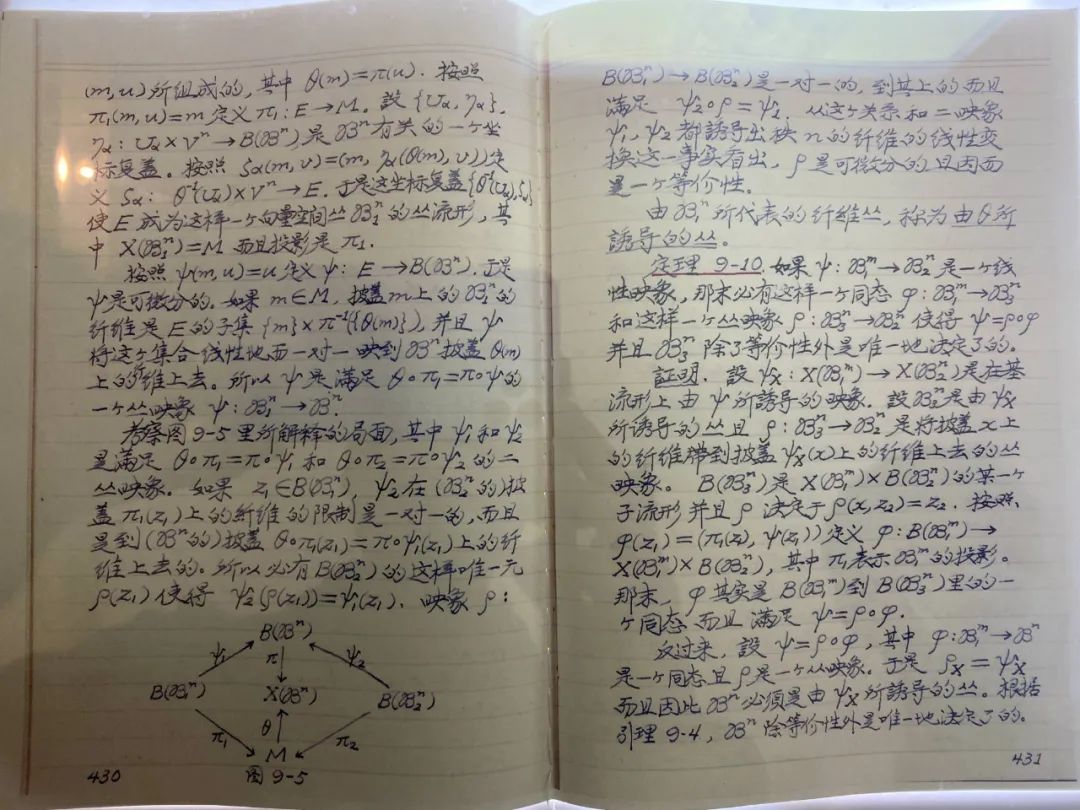 (m,u)所组成的,其中 θ(m)=π(u). 按照
π₁(m,u)=m 定义 π₁:E→M. 設{Uα,ηα},
ηα:Uα×Vⁿ→B(ℬⁿ)是ℬⁿ有关的一个坐
标复盖。按照 ζα(m,v)=(m,ηα(θ(m),v))定
义 ζα: θ⁻¹(Uα)×Vⁿ→E. 于是这坐标复盖{θ⁻¹(Uα),ζα}
使E成为这样一个向量空间丛ℬ₁ⁿ的丛流形,其
中 X(ℬ₁ⁿ)=M 而且投影是π₁.
按照 ψ(m,u)=u 定义 ψ: E→B(ℬⁿ). 于是
ψ是可微分的. 如果 m∈M, 披盖m上的ℬ₁ⁿ的
纤维是E的子集{m}×π⁻¹({θ(m)}),并且 ψ
将这个集合线性地而一对一映到ℬⁿ披盖θ(m)
上的纤维上去。所以 ψ 是满足 θ∘π₁=π∘ψ的
一个丛映象 ψ:ℬ₁ⁿ→ℬⁿ.
考察图9-5里所解释的局面,其中 ψ₁ 和 ψ₂
是满足 θ∘π₁=π∘ψ₁ 和 θ∘π₂=π∘ψ₂ 的二
丛映象。如果 z₁∈B(ℬ₁ⁿ), ψ₂在(ℬ₂ⁿ的)披
盖 π₁(z₁)上的纤维的限制是一对一的,而且
是到(ℬⁿ的)披盖 θ∘π₁(z₁)=π∘ψ₁(z₁)上的纤
维上去的。所以必有B(ℬ₂ⁿ)的这样唯一元
ρ(z₁)使得 ψ₂(ρ(z₁))=ψ₁(z₁). 映象 ρ:
B(ℬⁿ)
ψ₁ π ψ₂
B(ℬ₁ⁿ) X(ℬⁿ) B(ℬ₂ⁿ)
π₁ θ π₂
M
图9-5
430
B(ℬ₁ⁿ)→B(ℬ₂ⁿ)是一对一的,到其上的而且
满足 ψ₂∘ρ=ψ₁. 从这个关系和二映象
ψ₁,ψ₂都誘导出秩n的纤维的线性变
换这一事实看出,ρ是可微分的且因而
是一个等价性。
由ℬ₁ⁿ所代表的纤维丛,称为由θ所
誘导的丛。
定理 9-10. 如果 ψ:ℬ₁ᵐ→ℬ₂ⁿ是一个线
性映象,那末必有这样一个同态 φ:ℬ₁ᵐ→ℬ₃ⁿ
和这样一个丛映象 ρ:ℬ₃ⁿ→ℬ₂ⁿ 使得 ψ=ρ∘φ
并且ℬ₃ⁿ除了等价性外是唯一地决定了的。
証明. 設 ψx:X(ℬ₁ᵐ)→X(ℬ₂ⁿ)是在基
流形上由 ψ 所誘导的映象。設ℬ₃ⁿ是由ψx
所诱导的丛且 ρ:ℬ₃ⁿ→ℬ₂ⁿ 是将披盖x上
的纤维带到披盖 ψx(x)上的纤维上去的丛
映象。 B(ℬ₃ⁿ)是X(ℬ₁ᵐ)×B(ℬ₂ⁿ)的某一个
子流形并且 ρ 决定于 ρ(x,z₂)=z₂. 按照
φ(z₁)=(π₁(z₁),ψ(z₁))定义 φ:B(ℬ₁ᵐ)→
X(ℬ₁ᵐ)×B(ℬ₂ⁿ),其中π₁表示ℬ₁ᵐ的投影。
那末, φ其实是B(ℬ₁ᵐ)到B(ℬ₃ⁿ)里的一
个同态而且满足 ψ=ρ∘φ.
反过来,設 ψ=ρ∘φ,其中 φ:ℬ₁ᵐ→ℬⁿ
是一个同态且 ρ是一个丛映象。于是 ρx=ψx
而且因此ℬⁿ必須是由ψx所誘导的丛。根据
引理9-4,ℬⁿ除等价性外是唯一地决定了的。
431